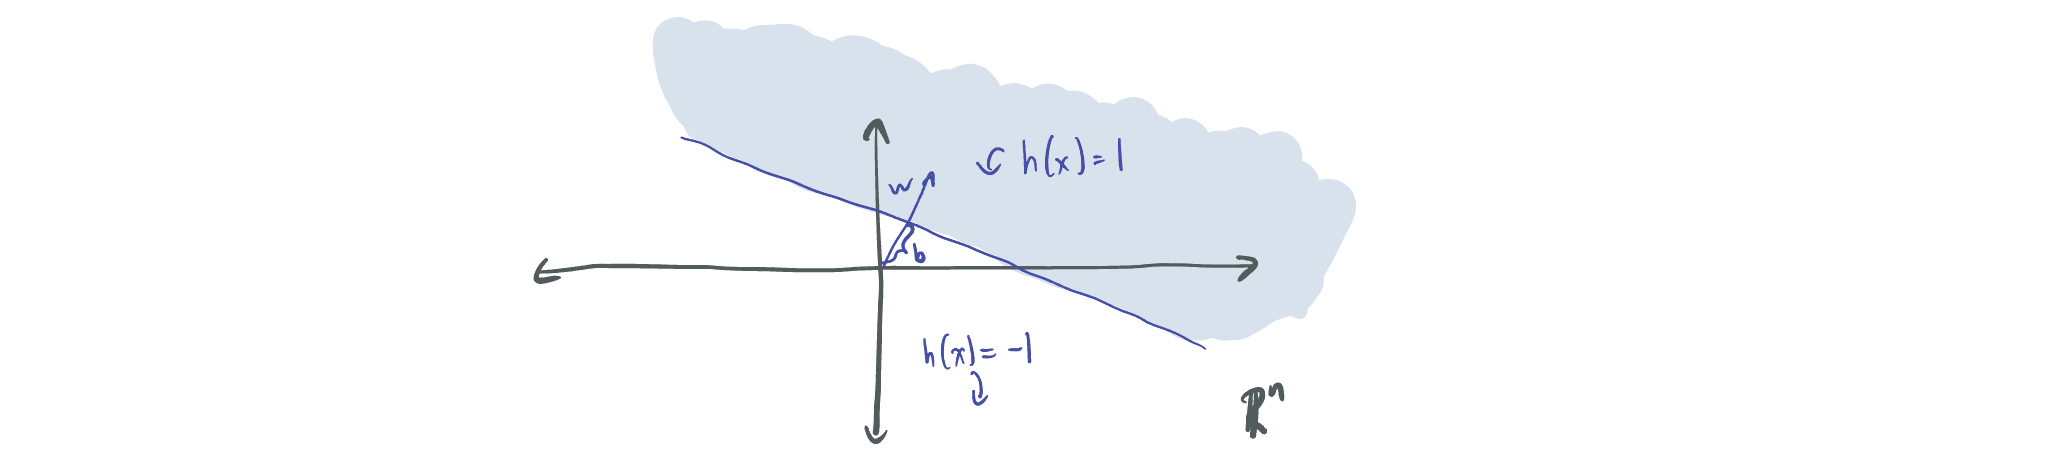 h(x)=1
w
b
h(x)= -1
ℝⁿ